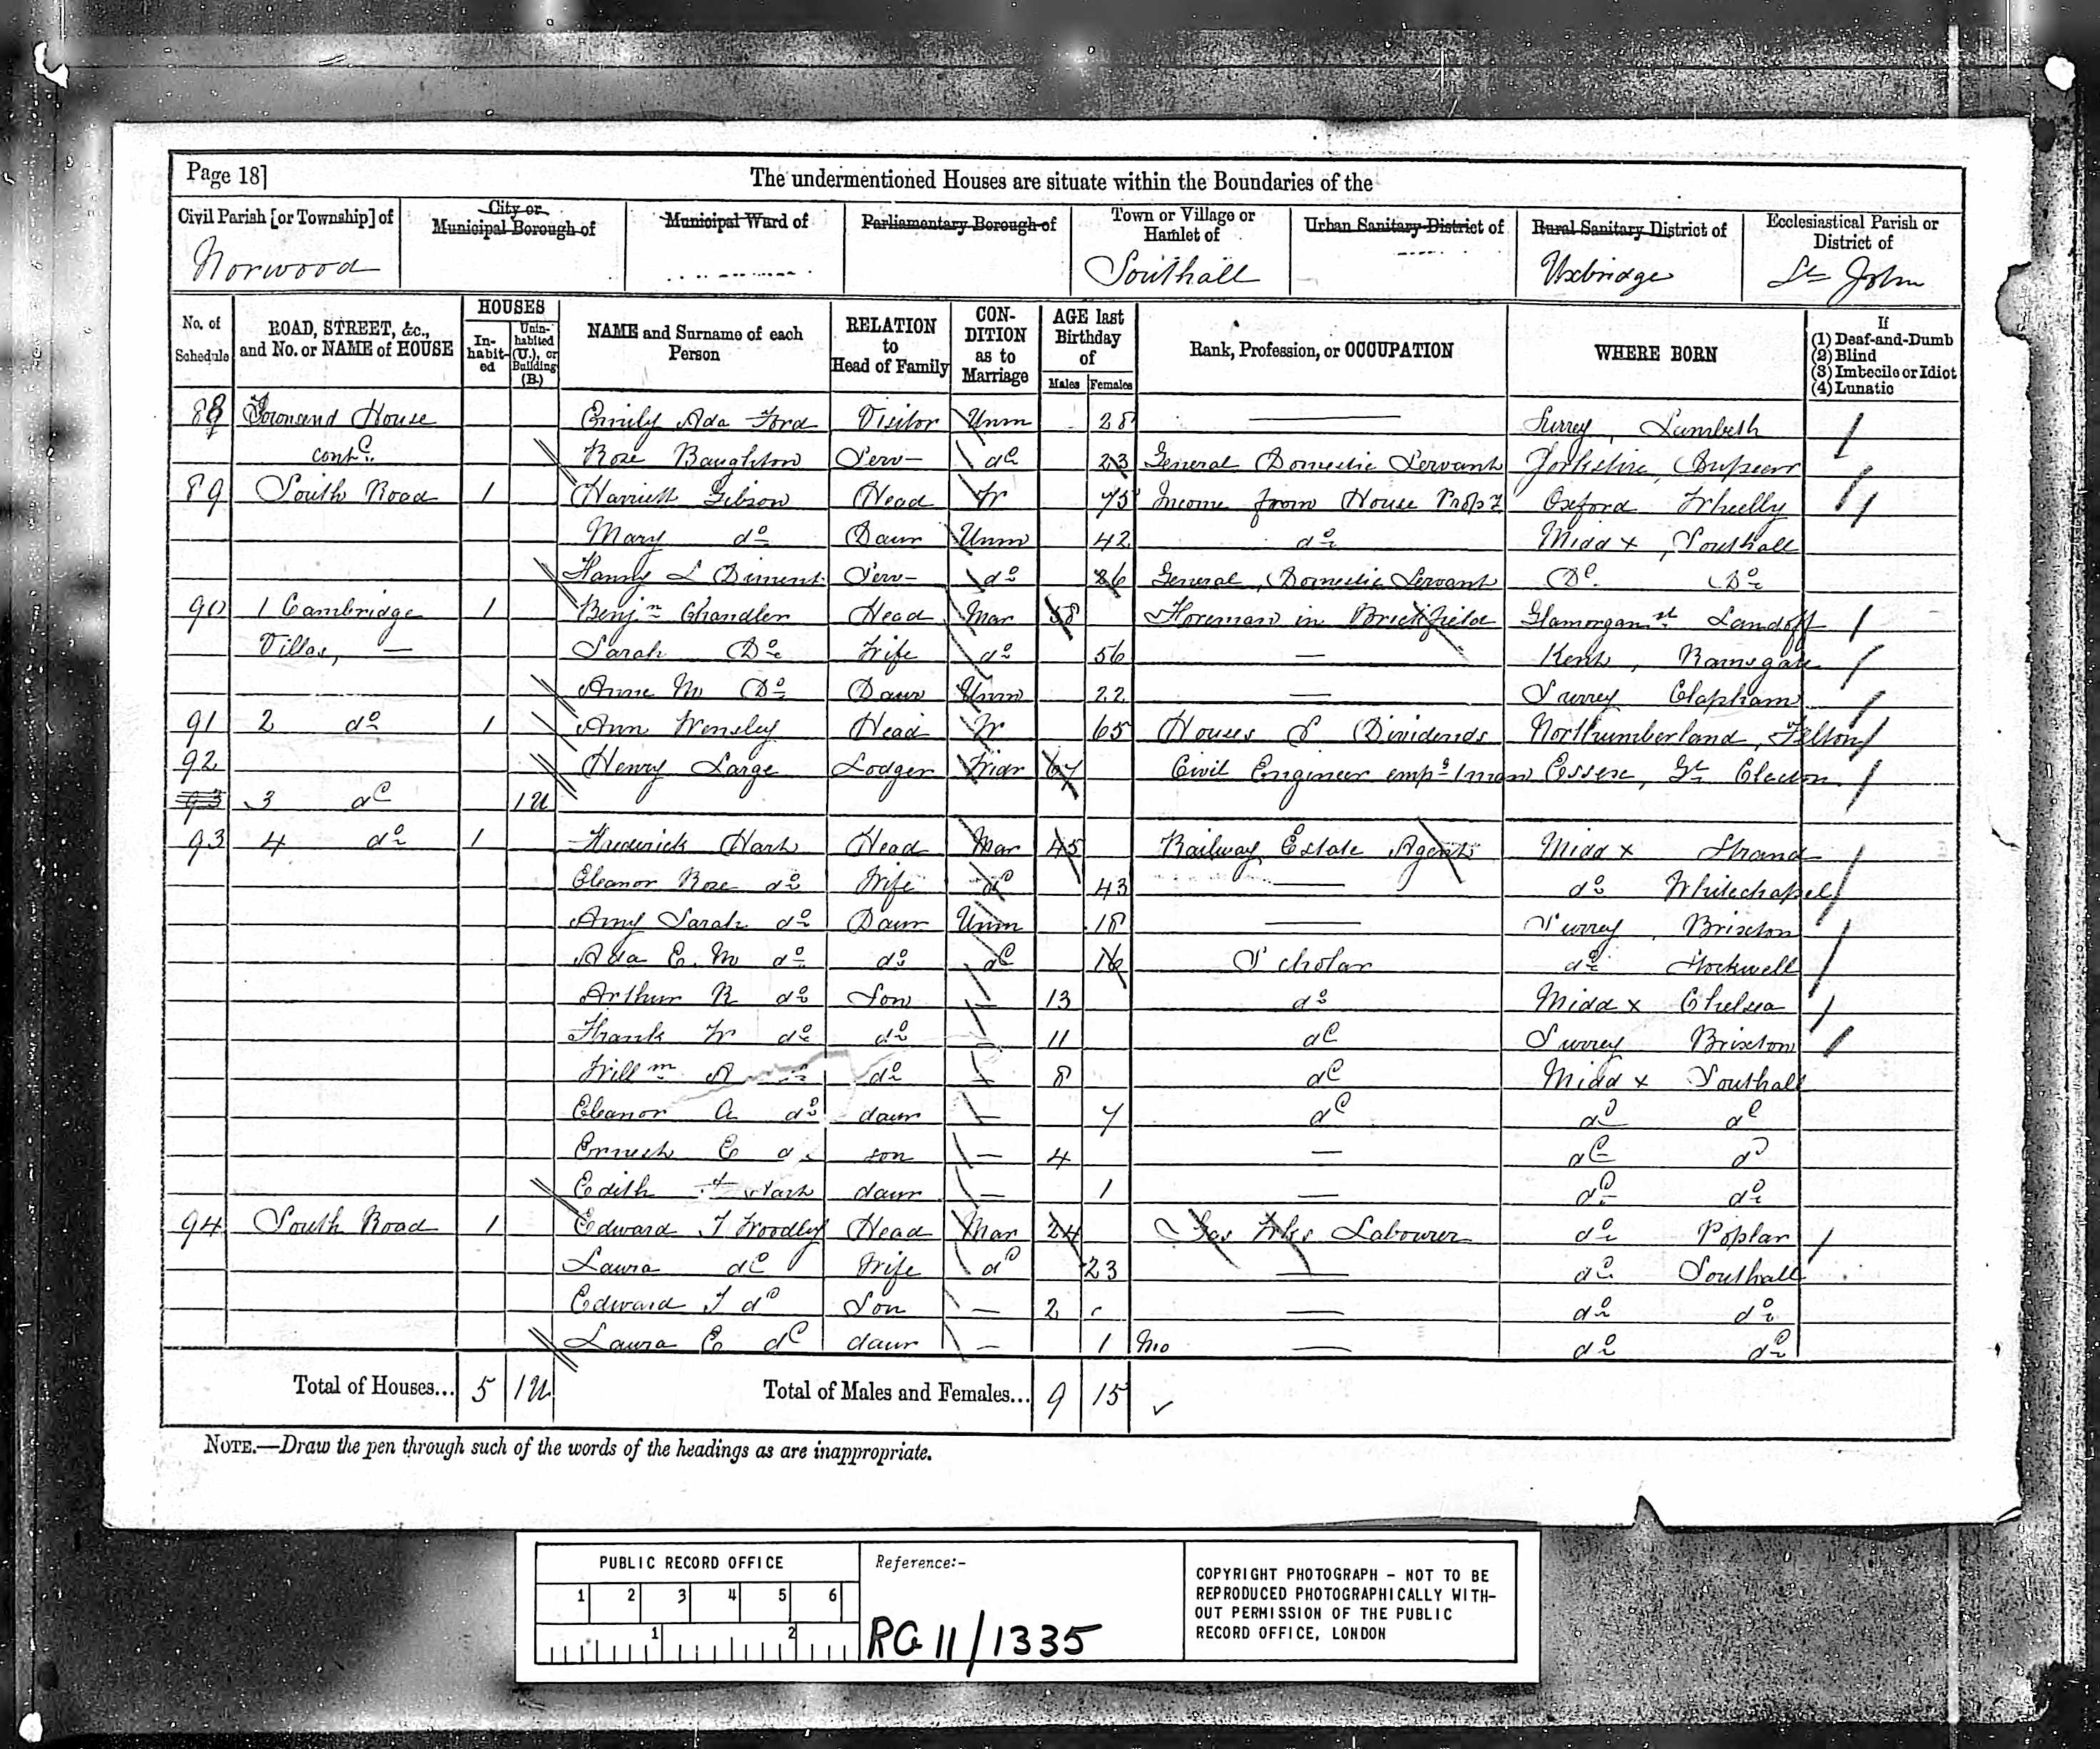 Page 18]
The undermentioned Houses are situate within the Boundaries of the
Civil Parish [or Township] of
City or Municipal Borough of
Municipal Ward of
Parliamentary Borough of
Town or Village or Hamlet of
Urban Sanitary District of
Rural Sanitary District of
Ecclesiastical Parish or District of
Norwood Southall Uxbridge St John
No. of Schedule
ROAD, STREET, &c., and No. or NAME of HOUSE
HOUSES
In-habit-ed
Unin-habited (U.), or Building (B.)
NAME and Surname of each Person
RELATION to Head of Family
CON-DITION as to Marriage
AGE last Birthday of
Males Females
Rank, Profession, or OCCUPATION
WHERE BORN
If
(1) Deaf-and-Dumb
(2) Blind
(3) Imbecile or Idiot
(4) Lunatic
88 Townsend House Emily Ada Ford Visitor Unm 28 Surrey, Lambeth
contd. Rose Serv do 23 General Domestic Servant Yorkshire,
89 South Road 1 Harriett Gibson Head W 75 Income from House Propy Oxford
Mary do Daur Unm 42 do Middx, Southall
Fanny L Diment Serv do 26 General, Domestic Servant Do. Do
90 1 Cambridge 1 Benjn Chandler Head Mar 58 Foreman in Brickfield Glamorgan Landoff
Villas, Sarah Do Wife do 56 Kent, Ramsgate
Anne M Do Daur Unm 22 Surrey Clapham
91 2 do 1 Ann Wensley Head W 65 Houses & Dividends Northumberland, Felton
92 Henry Large Lodger 67 Civil Engineer emps 1 man Essex, Gt Clacton
93 3 do 1U
93 4 do 1 Frederick Hart Head Mar 45 Railway Estate Agent Middx Strand
Eleanor Rose do Wife do 43 do Whitechapel
Amy Sarah do Daur Unm 18 Surrey, Brixton
Ada E. M do do do 16 Scholar do Stockwell
Arthur R do Son 13 do Middx Chelsea
Frank W do do 11 do Surrey Brixton
Willm A do 8 do Middx Southall
Eleanor A do daur 7 do do do
Ernest E do son 4 do do
Edith Hart daur 1 do do
94 South Road 1 Edward T Woodley Head Mar 24 Gas Wks Labourer do Poplar
Laura do Wife do 23 do Southall
Edward T do Son 2 do do
Laura E do daur 1 Mo do do
Total of Houses... 5 1U Total of Males and Females... 9 15
NOTE.—Draw the pen through such of the words of the headings as are inappropriate.
PUBLIC RECORD OFFICE
1 2 3 4 5 6
1 2
Reference:-
RG 11/1335
COPYRIGHT PHOTOGRAPH - NOT TO BE
REPRODUCED PHOTOGRAPHICALLY WITH-
OUT PERMISSION OF THE PUBLIC
RECORD OFFICE, LONDON